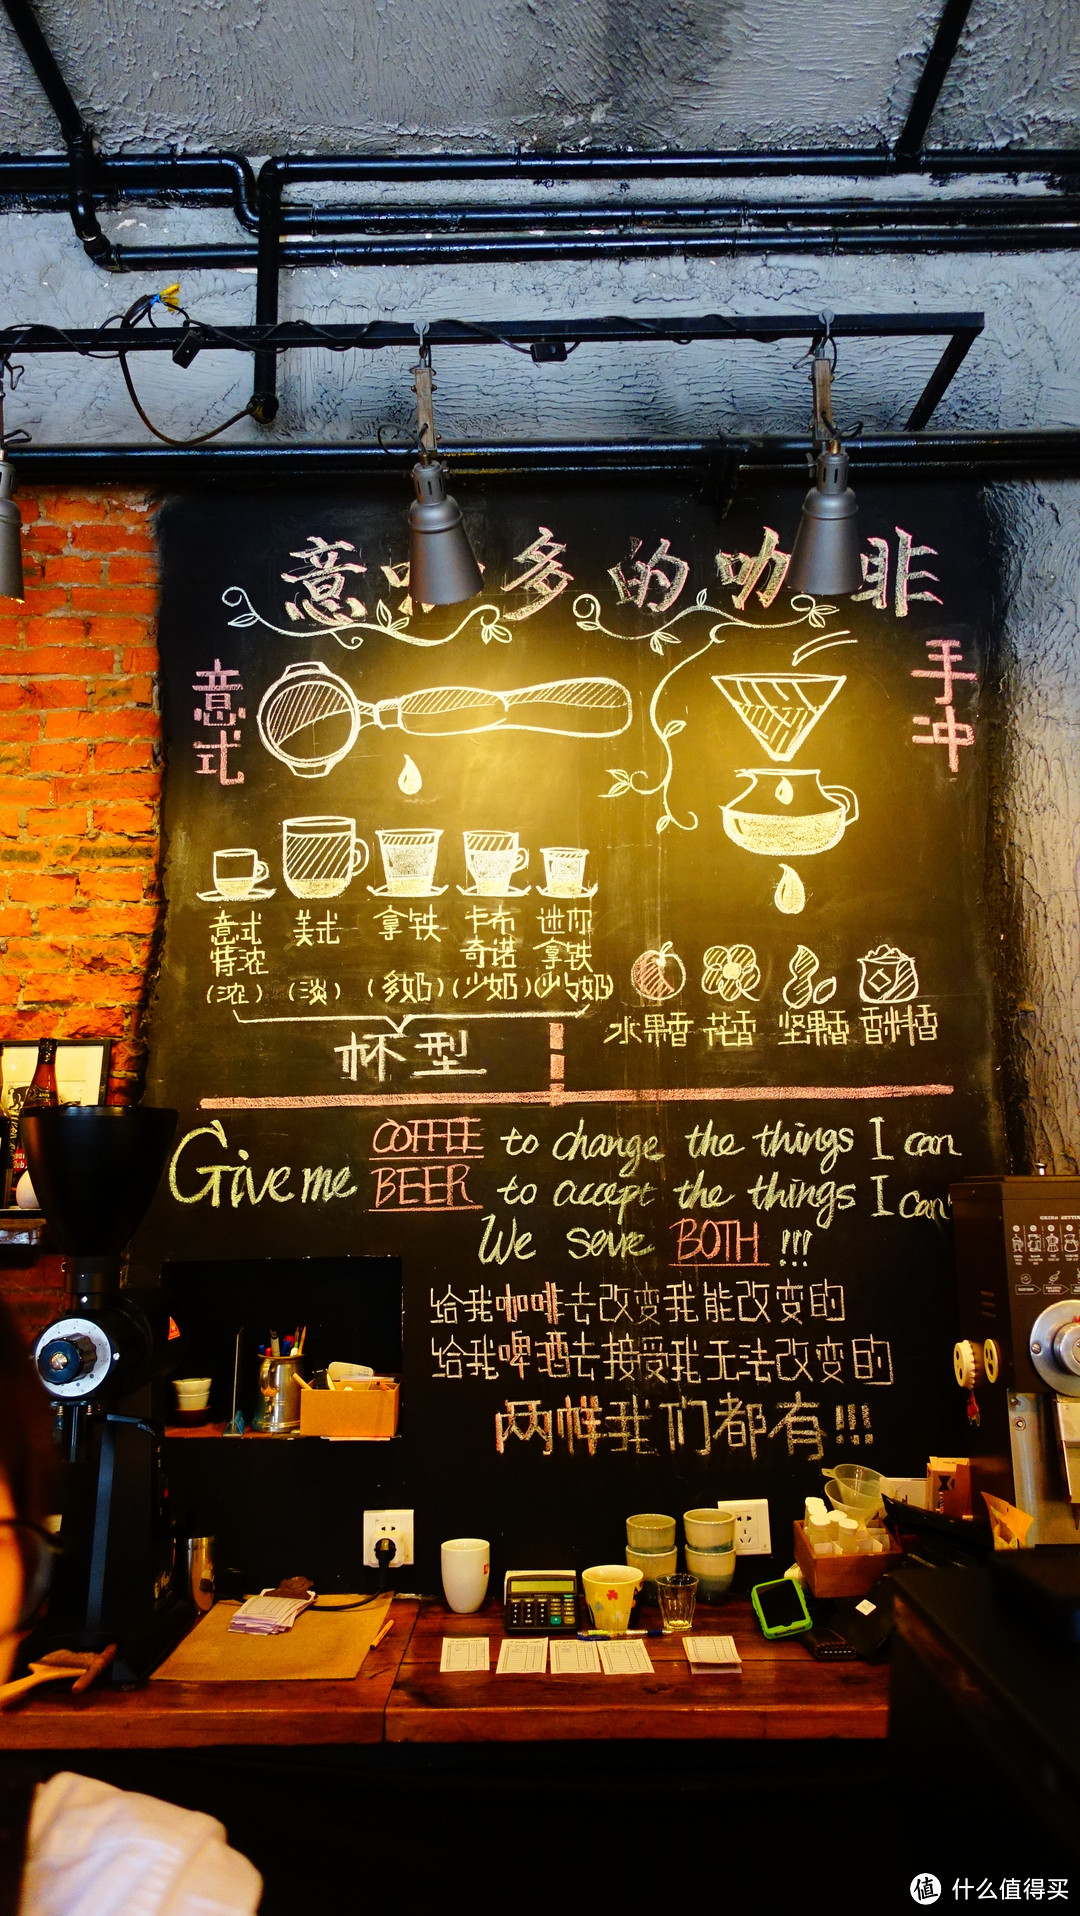 意咪多的咖啡
意式
手冲
意式特浓
(浓)
美式
(淡)
拿铁
(多奶)
卡布奇诺
(少奶)
迷你拿铁
(少少奶)
杯型
水果香 花香 坚果香 香料香
Give me COFFEE to change the things I can
BEER to accept the things I can't
We serve BOTH !!!
给我咖啡去改变我能改变的
给我啤酒去接受我无法改变的
两样我们都有!!!
值 什么值得买